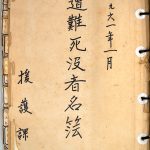 一九六一年一月
遭難死没者名簿
援護課